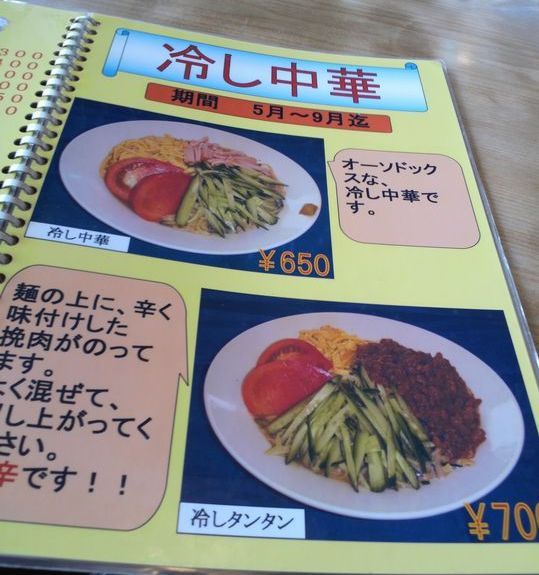 冷し中華
期間 5月～9月迄
オーソドック
スな、
冷し中華で
す。
冷し中華
￥650
麺の上に、辛く
味付けした
挽肉がのって
ます。
よく混ぜて、
召し上がってく
ださい。
辛です！！
冷しタンタン
￥700